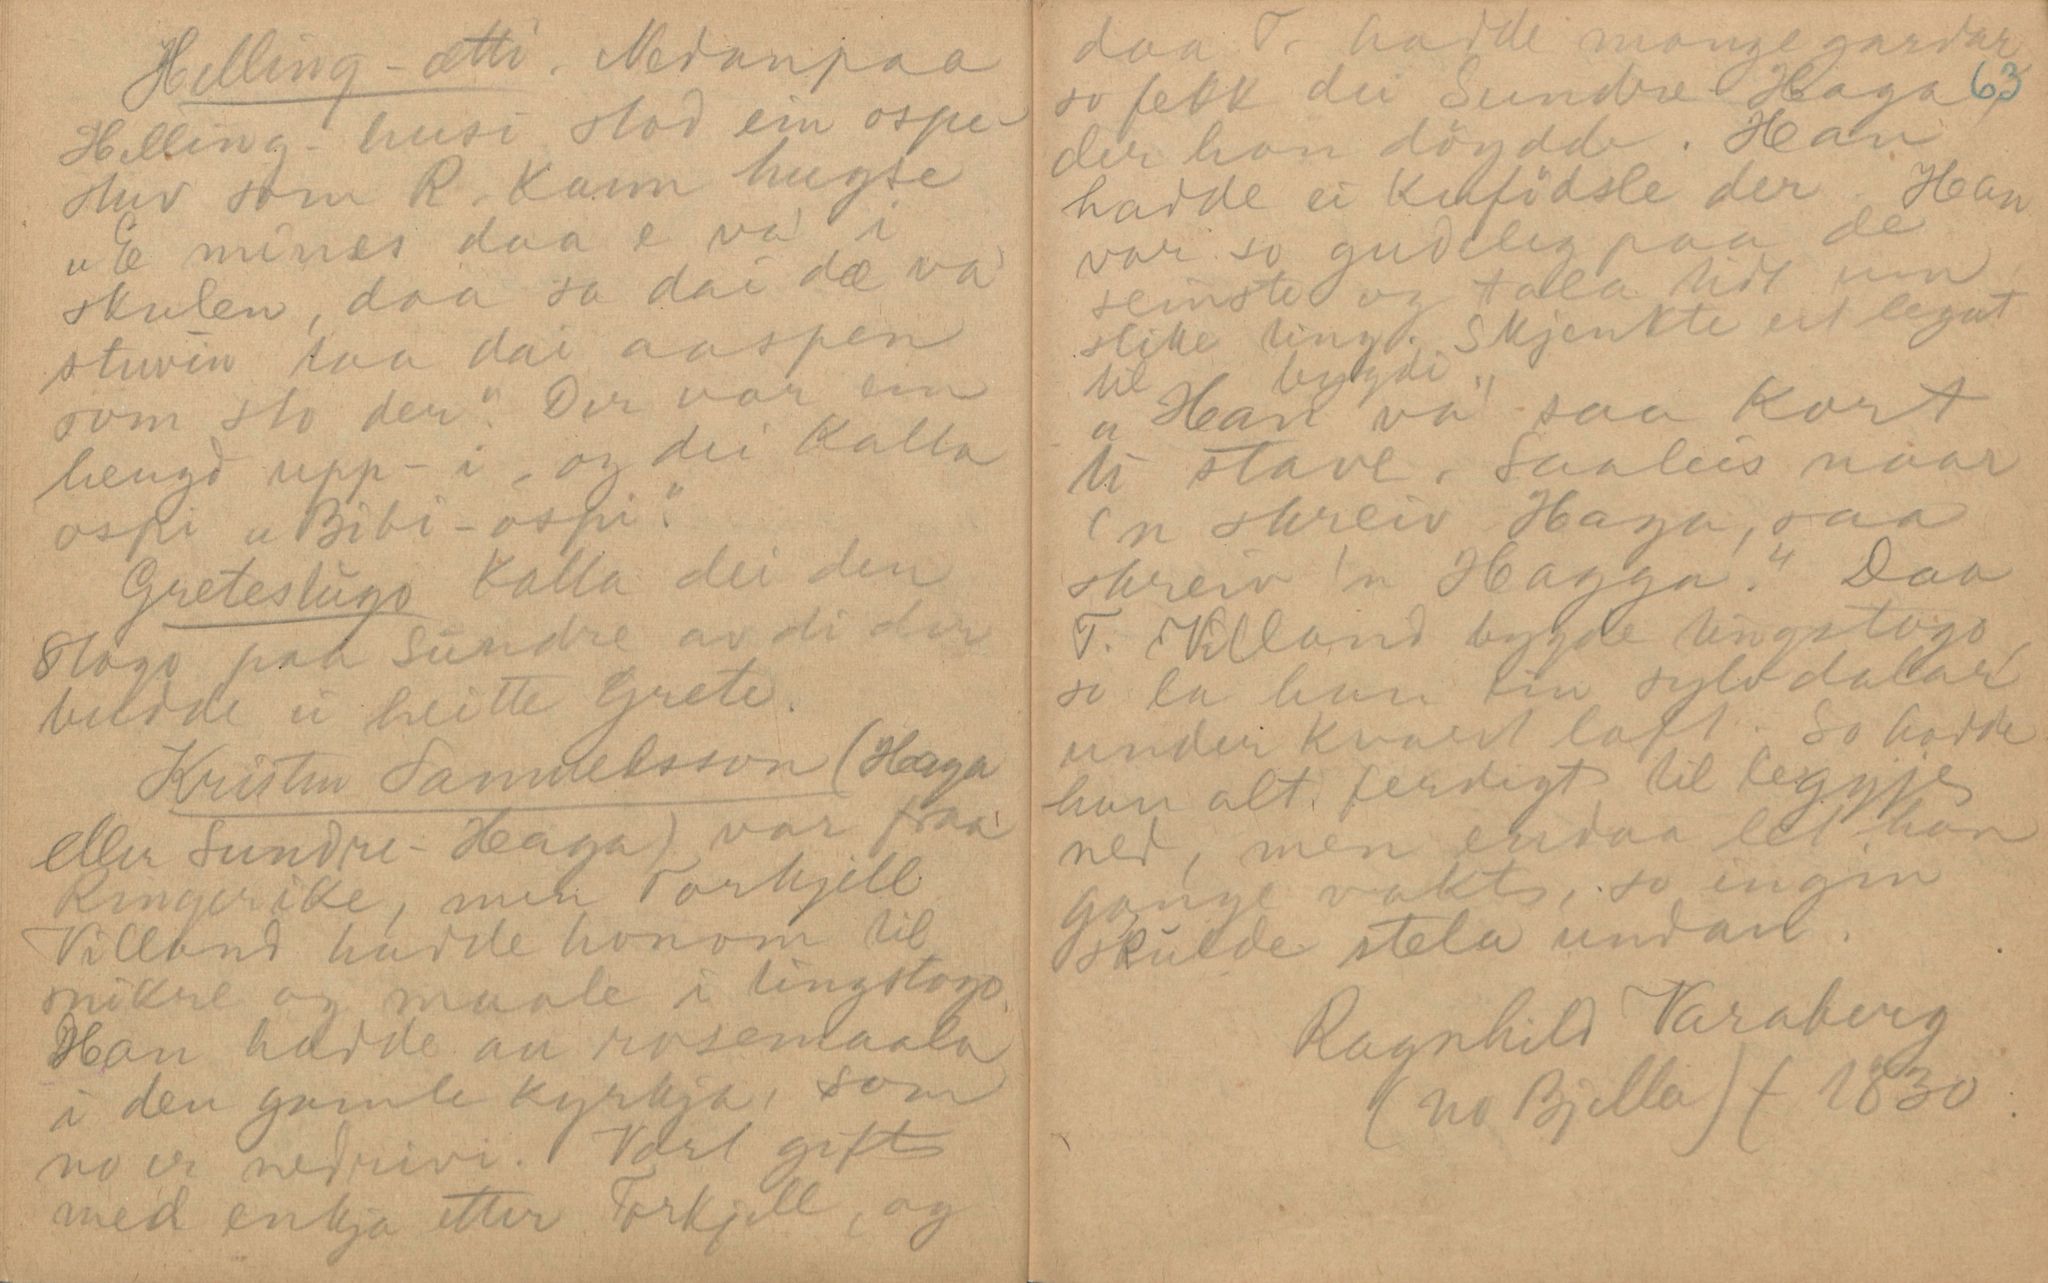 Helling-ætti. Nedanpaa
Helling-husi stod ein ospe-
stuv som R. Kann hugse
„E mines daa e va' i
skulen, daa sa dai dæ va'
stuvin taa dai aaspen
som sto der". Der var ein
hengd upp-i, og dei kalla
ospi „Bibi-ospi".
Gretestúgo kalla dei den
stogo paa Sundre av di der
budde ei heitte Grete.
Kristen Samuelsson (Haga
eller Sundre-Haga) var fraa
Ringerike, men Torkjell
Villand hadde honom til
snikre og maale i tingstogo.
Han hadde au rosemaala
i den gamle kyrkja, som
no er nedrivi. Vart gift
med enkja etter Torkjell, og
63
daa T. hadde mange gardar
so fekk dei Sundre Haga,
der han döydde. Han
hadde ei kufödsle der. Han
var so gudeleg paa de
seinste og tala tidt um
slike ting. Skjenkte eit legat
til bygdi
„Han va' saa kort
ti stave. Saaleis naar
'n skreiv Haga, saa
skreiv 'n Hagga." Daa
T. Villand bygde tingstogo,
so la han ein sylvdalar
under kvart laft. So hadde
han alt ferdigt til leggje
ned, men endaa let han
gange vakt, so ingin
skulde stela undan.
Ragnhild Varaberg
(no Bjella) f 1830.